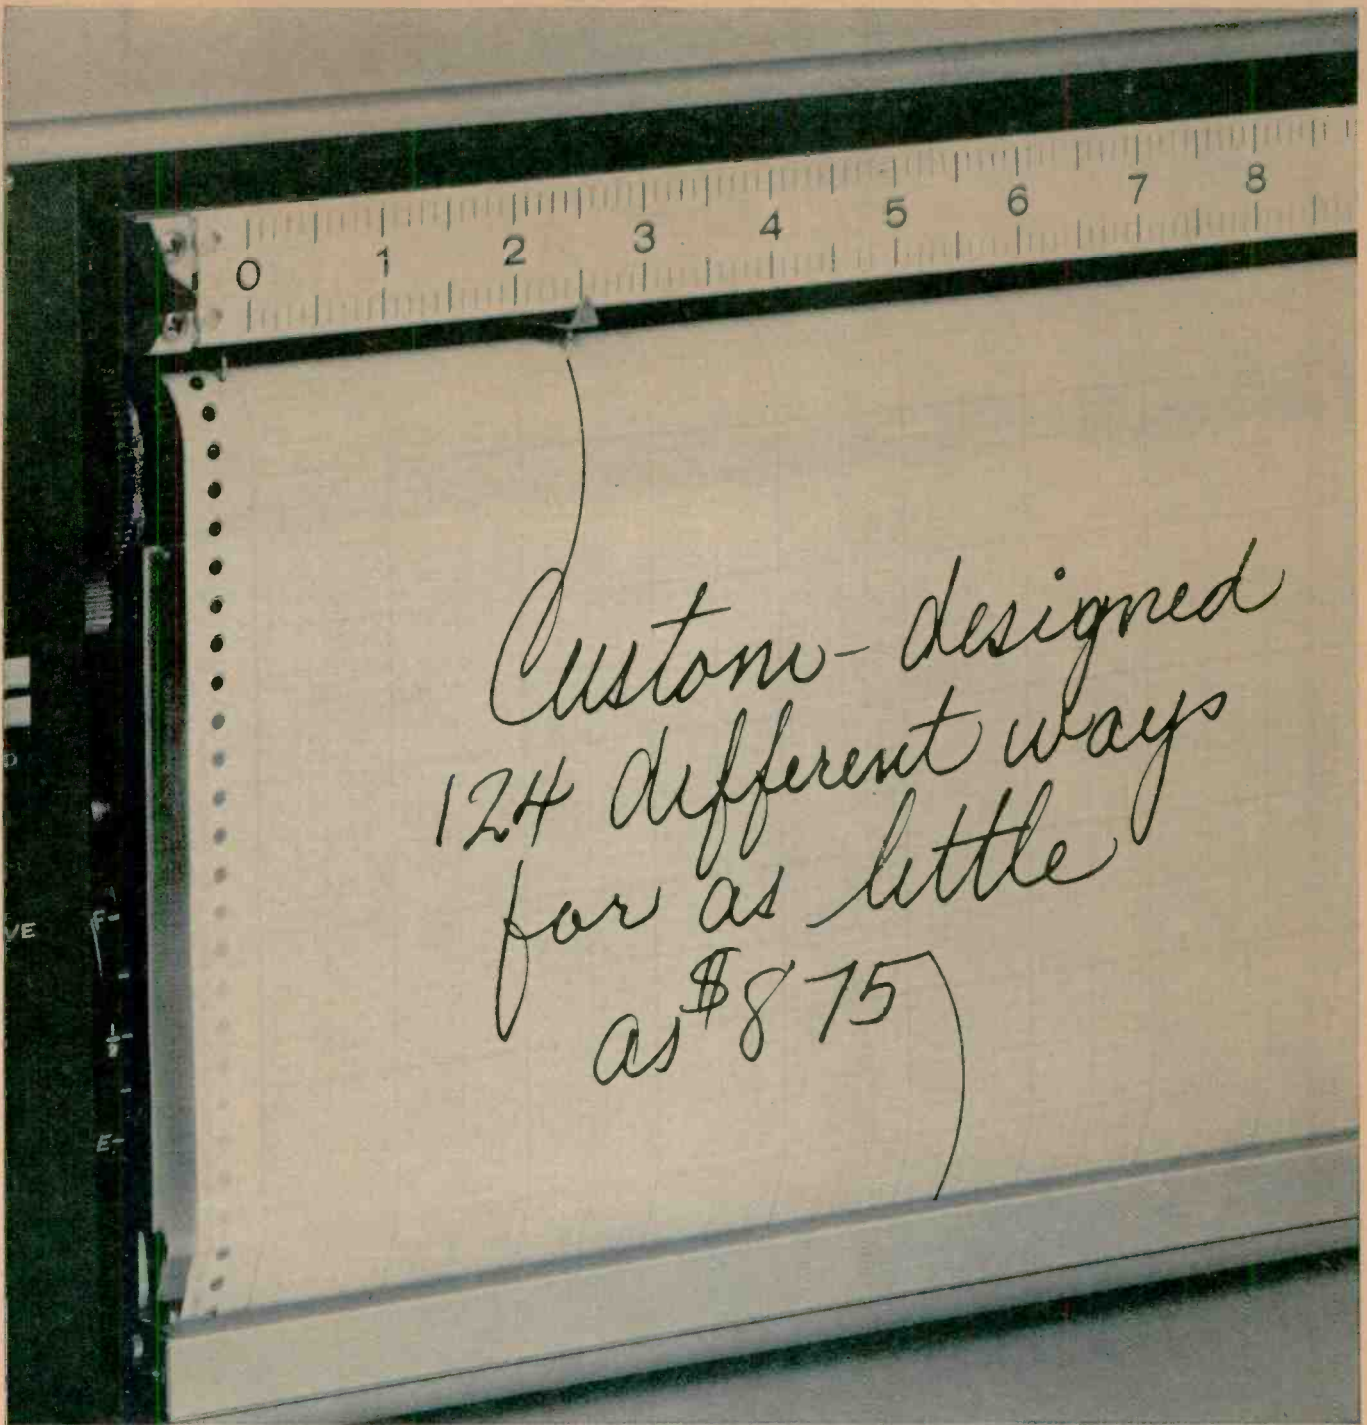 0 1 2 3 4 5 6 7 8
Custom-designed
124 different ways
for as little
as $875
VE
F-
E-